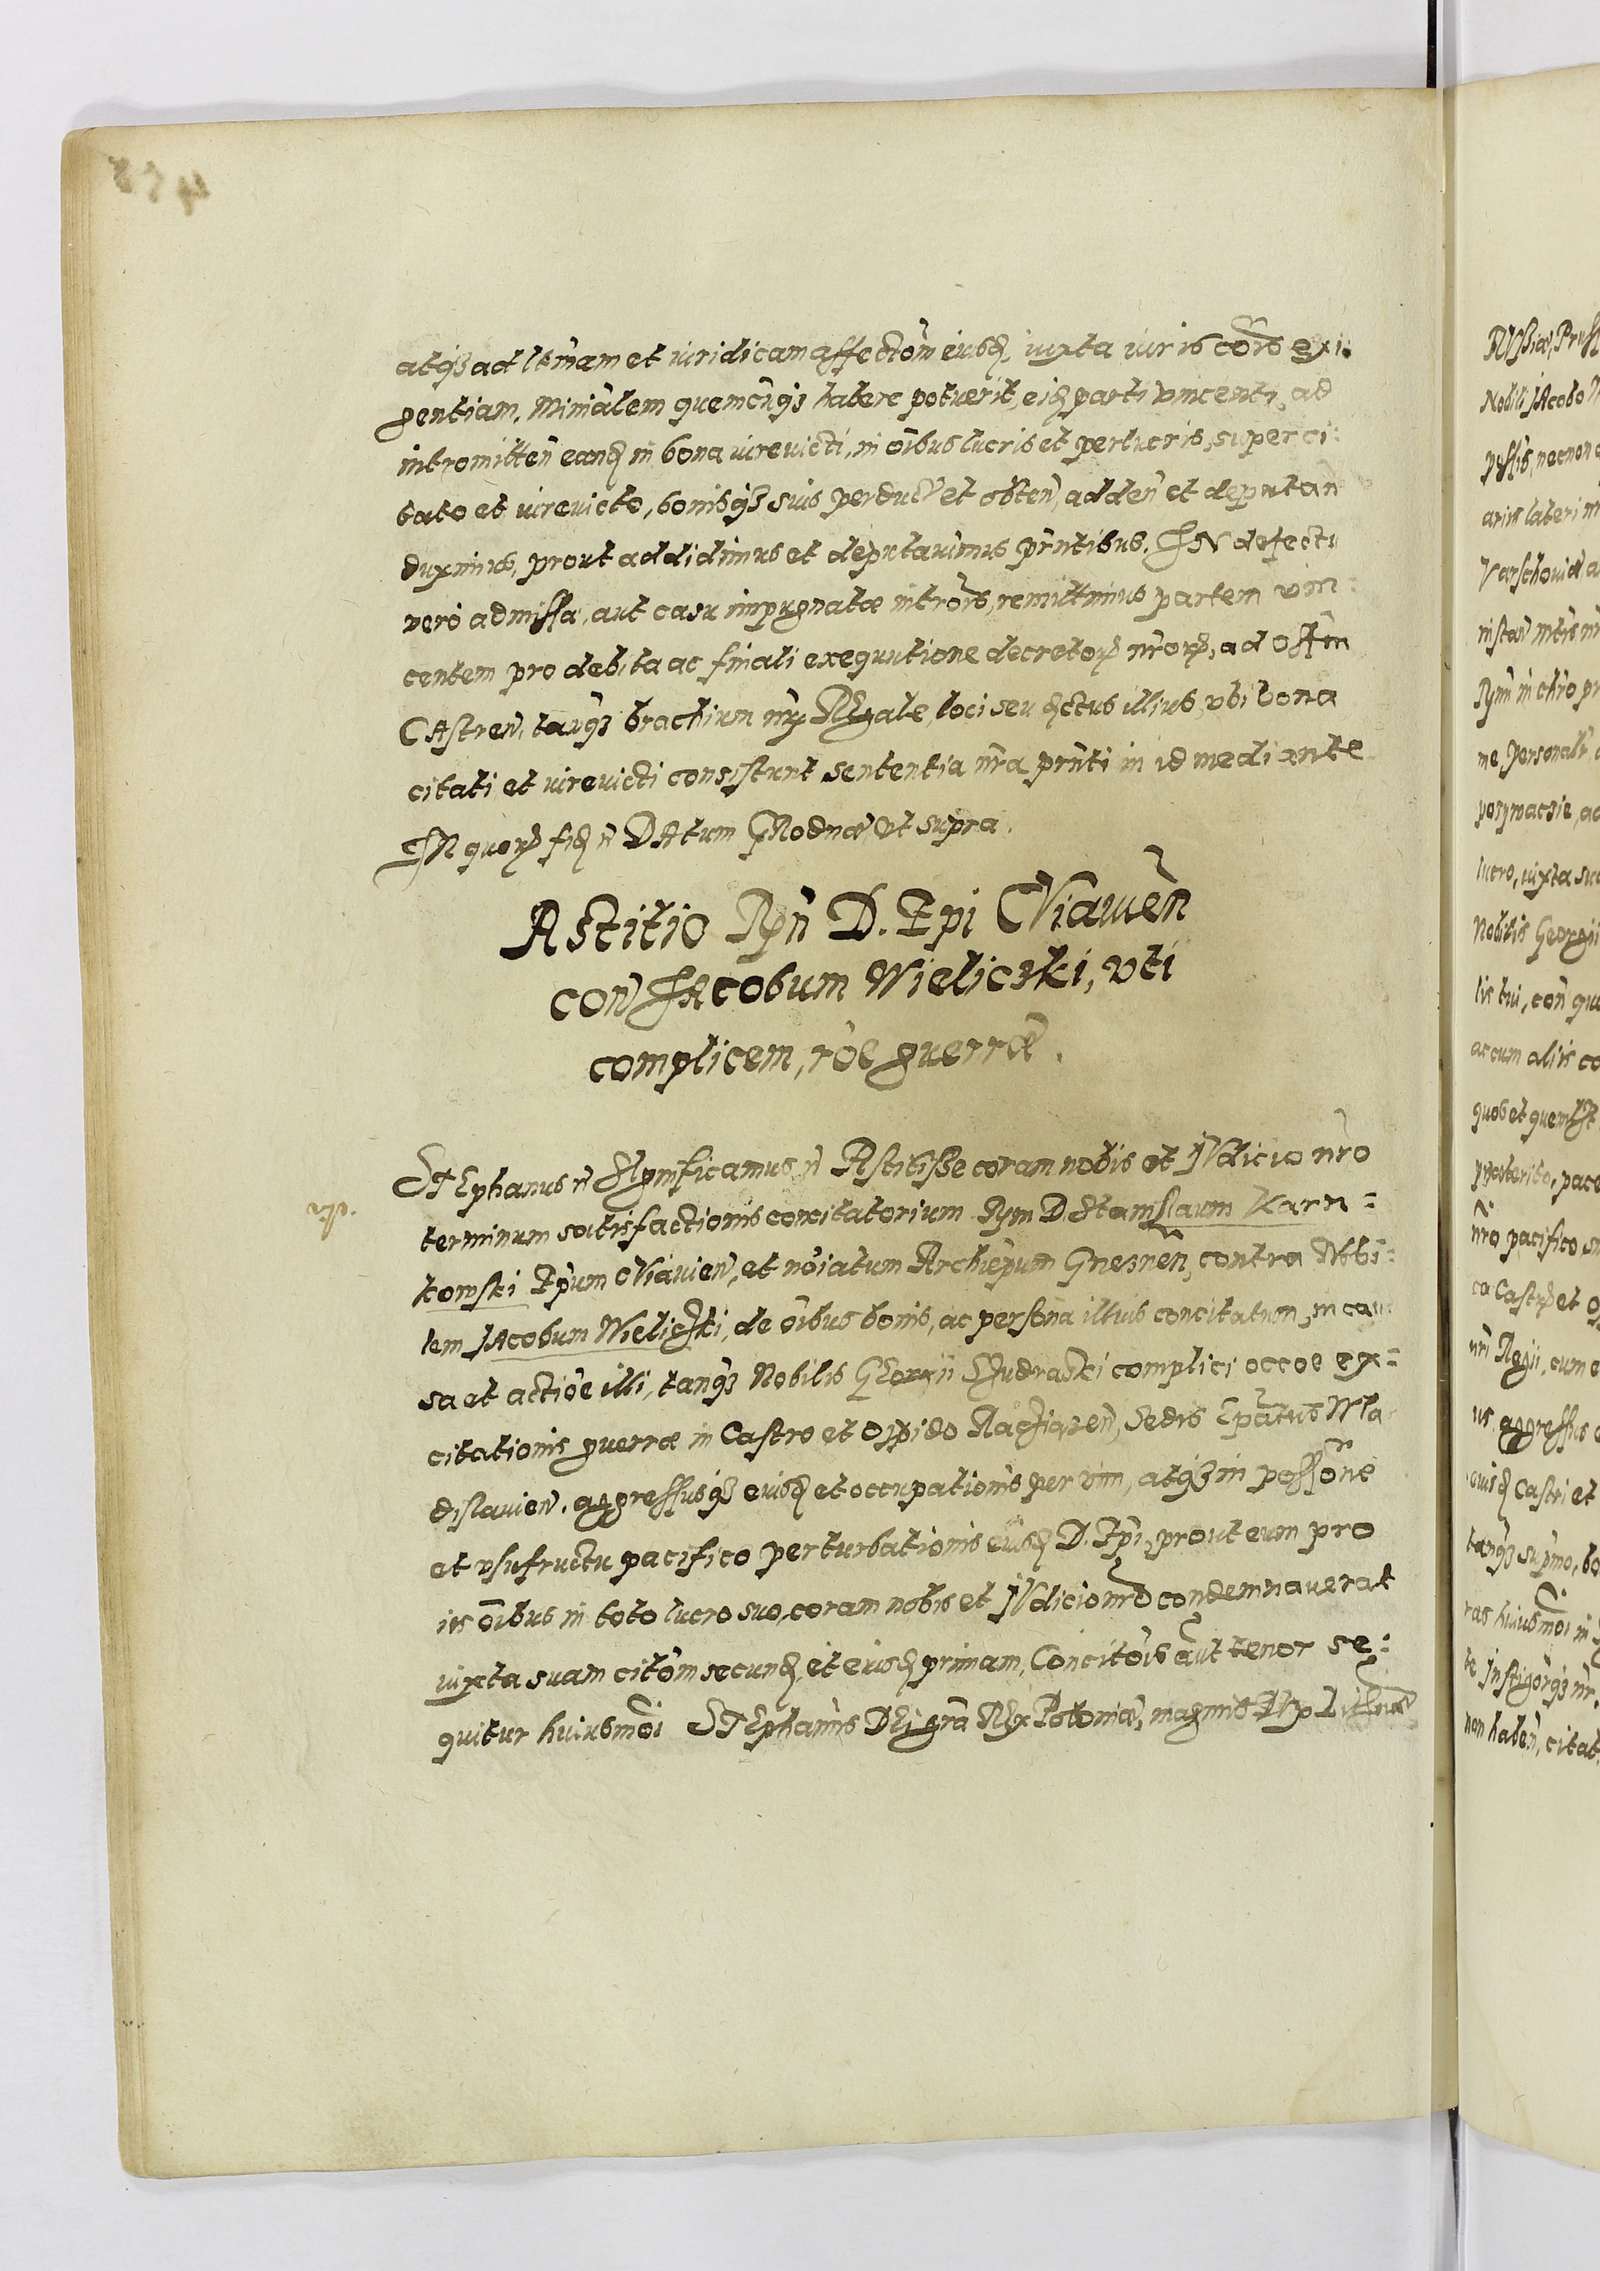 atq₃ ad ltimam et iuridicam affectiõm eiusd, iuxta iuris cõis exi:
gentiam, Minialem quemcũq₃ habere potuerit, eid parti vincenti, ad
intromitteñ eand in bona iurevicti, in oĩbus lucris et perlucris, super ci:
tato et iurevicto, bonisq₃ suis perduct et obteñ, addeñ et deputañ
duximus, prout addidimus et deputauimus pñtibus. IN defectu
vero admissa, aut casu impugnatæ intrõis, remittimus partem vin:
centem pro debita ac finali exequutione decretoꝝ nr̃oꝝ, ad Offm
CAstreñ, tanq₃ brachium nrm REgale, loci seu dctus illius, vbi bona
citati et iurevicti consistunt sententia nr̃a pñti in id mediante
IN quoꝝ fid ñ DAtum GRodnæ, vt supra.
AStitio Rñ D. Epi CViavieñ
coñ JAcobum Wieliczki, vti
complicem, rõe guerræ.
STEphanus ñ SIgnificamus ñ AStitisse coram nobis et JVdicio nr̃o
terminum satisfactionis concitatorium Rym D. Stanislaum Karn=
kowski Epum CViavieñ, et noĩatum Archiepum Gnesneñ, contra Nobi=
lem JAcobum Wieliczki, de oĩbus bonis, ac persona illius concitatum, in cau=
sa et actiõe illi, tanq₃ Nobilis GEorgii complici occõe ex=
citationis guerræ in Castro et Oppido Raciązeñ, Sedis Epatus Wla
dislavieñ. aggressusq₃ eiusd et occupationis per vim, atq₃ in possõne
et vsufructu pacifico perturbationis eiusd D. Epi, prout eum pro
iis oĩbus in toto lucro suo, coram nobis et JVdicio nr̃o condemnaverat
iuxta suam citõm secund, et eiusd primam, Concitõis aũt tenor se:
quitur huiusmõi STEphanus DEi grã REx Poloniæ, magnus DVx Lithuæ